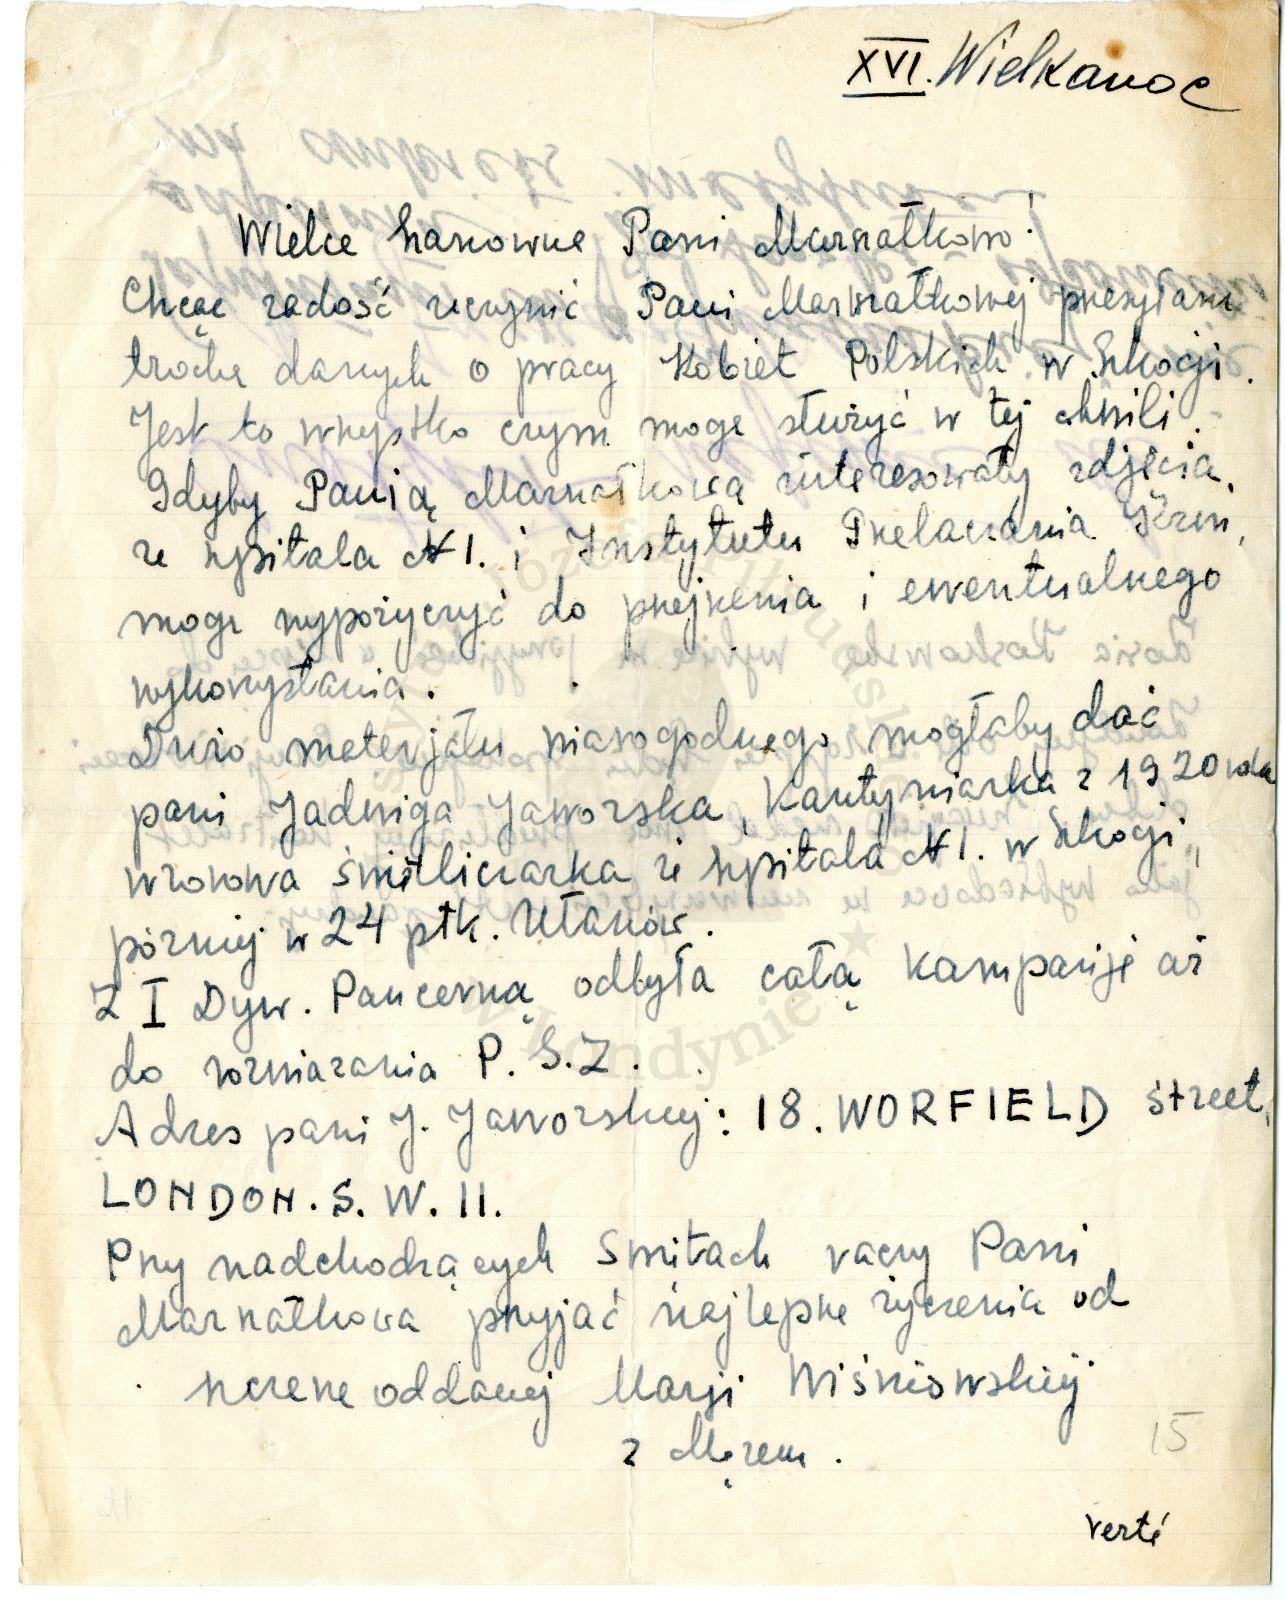 XVI. Wielkanoc
Wielce Szanowna Pani Marszałkowo!
Chcąc radość uczynić Pani Marszałkowej przesyłam
trochę danych o pracy Kobiet Polskich w Szkocji.
Jest to wszystko czym mogę służyć w tej chwili.
Gdyby Panią Marszałkową interesowały zdjęcia,
ze szpitala № 1. i Instytutu Przetaczania Krwi,
mogę wypożyczyć do przejrzenia i ewentualnego
wykorzystania.
Dużo materjału wiarogodnego mogłaby dać
pani Jadwiga Jaworska, Kantyniarka z 1920 roku
wzorowa świetliczarka ze szpitala № 1. w Szkocji,
później w 24 płk. Ułanów.
Z I Dyw. Pancerną odbyła całą kampanję aż
do rozwiązania P.S.Z.
Adres pani J. Jaworskiej: 18. WORFIELD street,
LONDON. S. W. 11.
Przy nadchodzących Świętach raczy Pani
Marszałkowa przyjąć najlepsze życzenia od
szczerze oddanej Marji Wiśniowskiej
z Mężem.
15
verté
Józefa Piłsudskiego
w Londynie